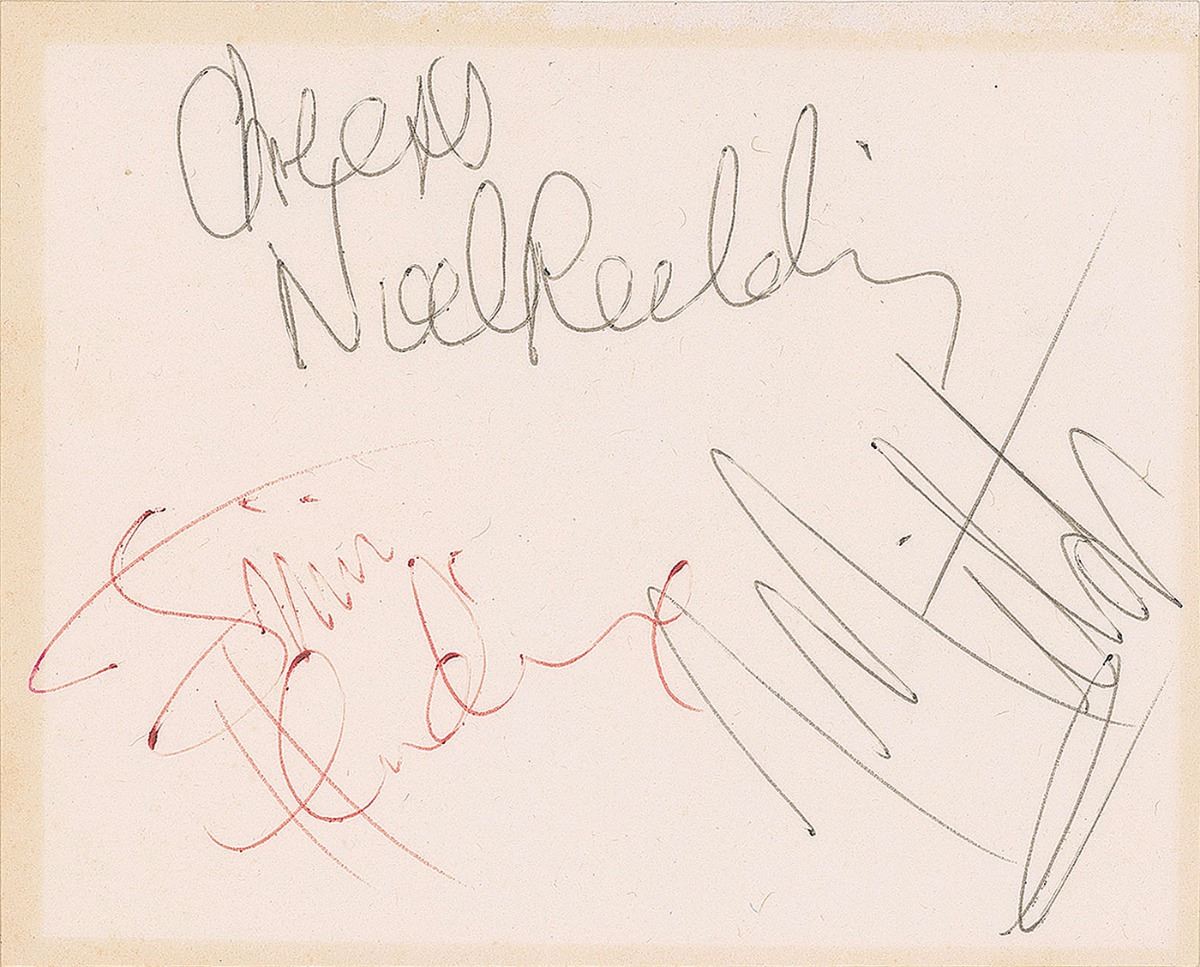 Cheers
Noel Redding
Jimi
Hendrix
Mitch